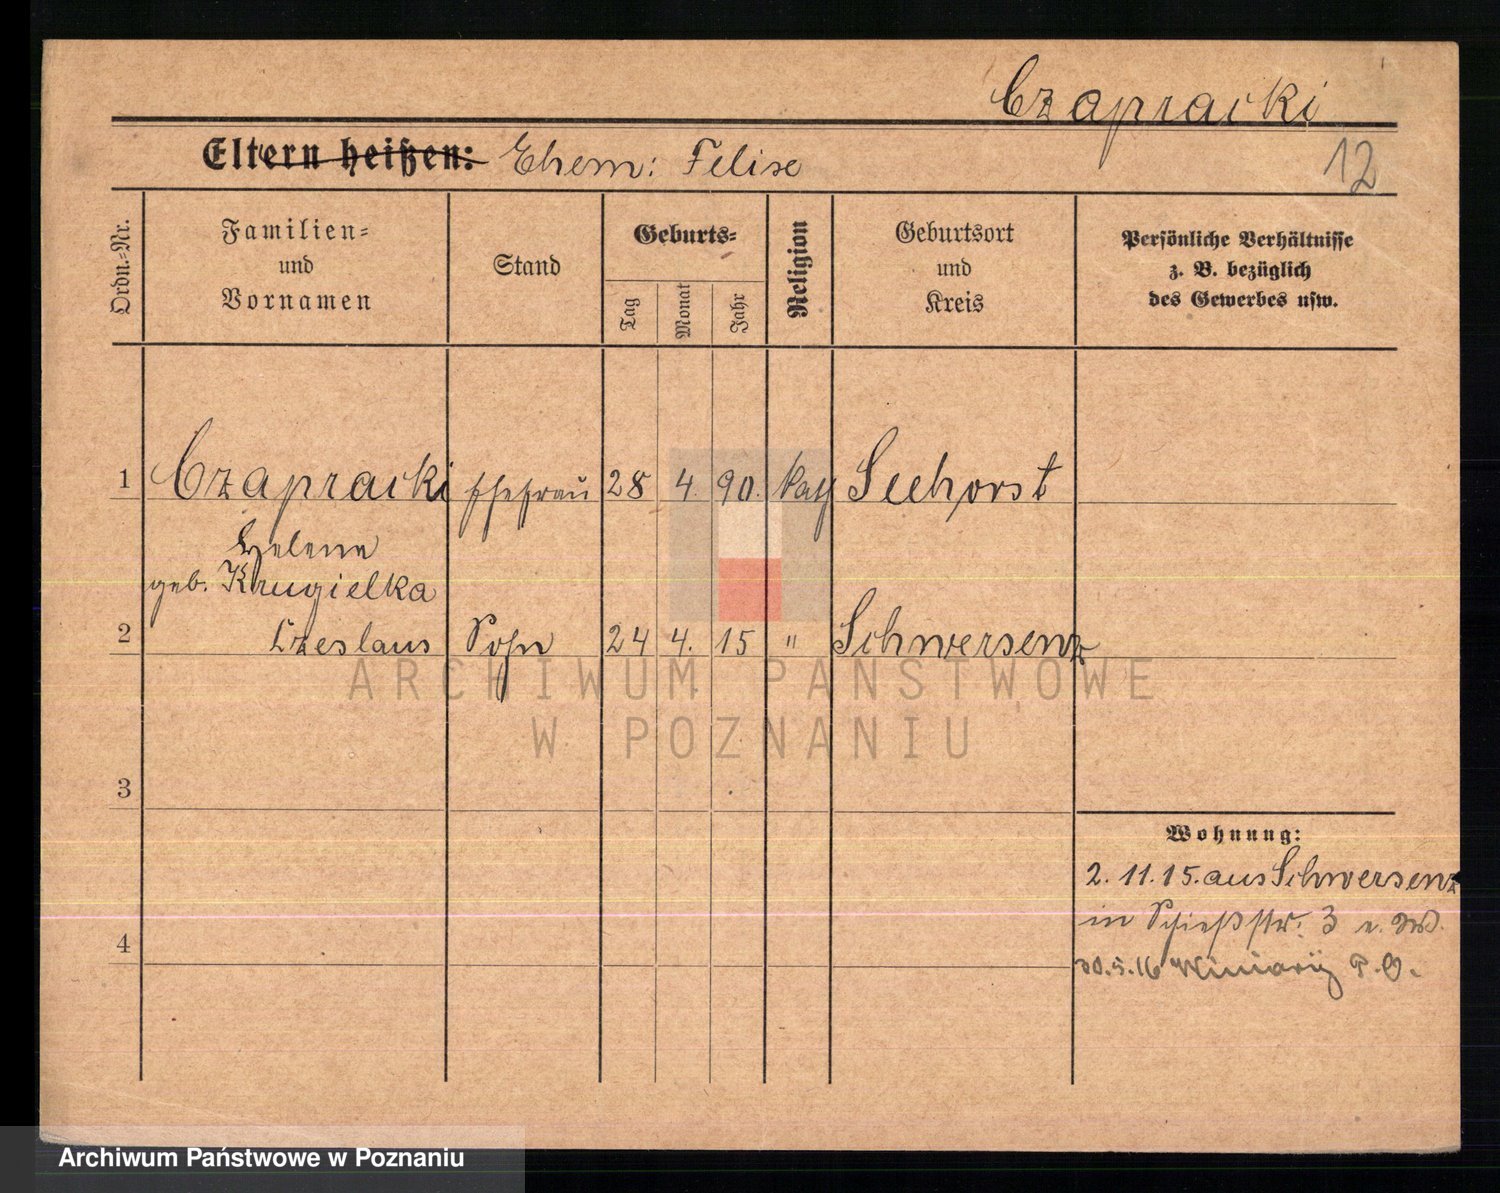 Czapracki
Eltern heißen: Ehem: Felise
12
Ordn.=Nr.
Familien=
und
Vornamen
Stand
Geburts=
Tag
Monat
Jahr
Religion
Geburtsort
und
Kreis
Persönliche Verhältnisse
z. B. bezüglich
des Gewerbes usw.
1 Czapracki Ehefrau 28 4. 90. kath Seehorst
Helene
geb. Krugielka
2 Czeslaus Sohn 24 4. 15 " Schwersenz
ARCHIWUM PAŃSTWOWE
W POZNANIU
3
Wohnung:
2. 11. 15. aus Schwersenz
in Schießstr. 3
4
30.5.16 P.O.
Archiwum Państwowe w Poznaniu